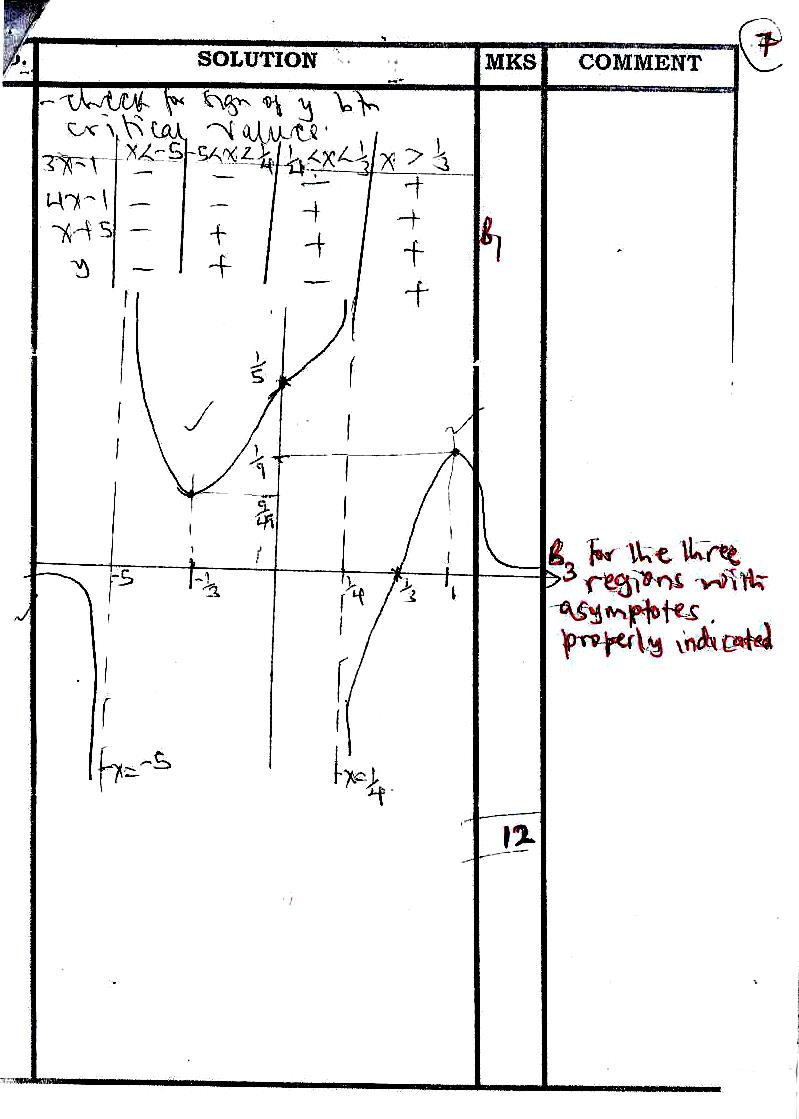 7
SOLUTION MKS COMMENT
- check for sign of y btn
critical values.
x<-5 -5<x<1/4 1/4<x<1/3 x>1/3
3x-1 - - - +
4x-1 - - + +
x+5 - + + +
y - + - +
B1
1/5
1/9
9/49
-5 -1/3 1/4 1/3 1
B3 for the three
regions with
asymptotes.
properly indicated
x=-5 x=1/4
12